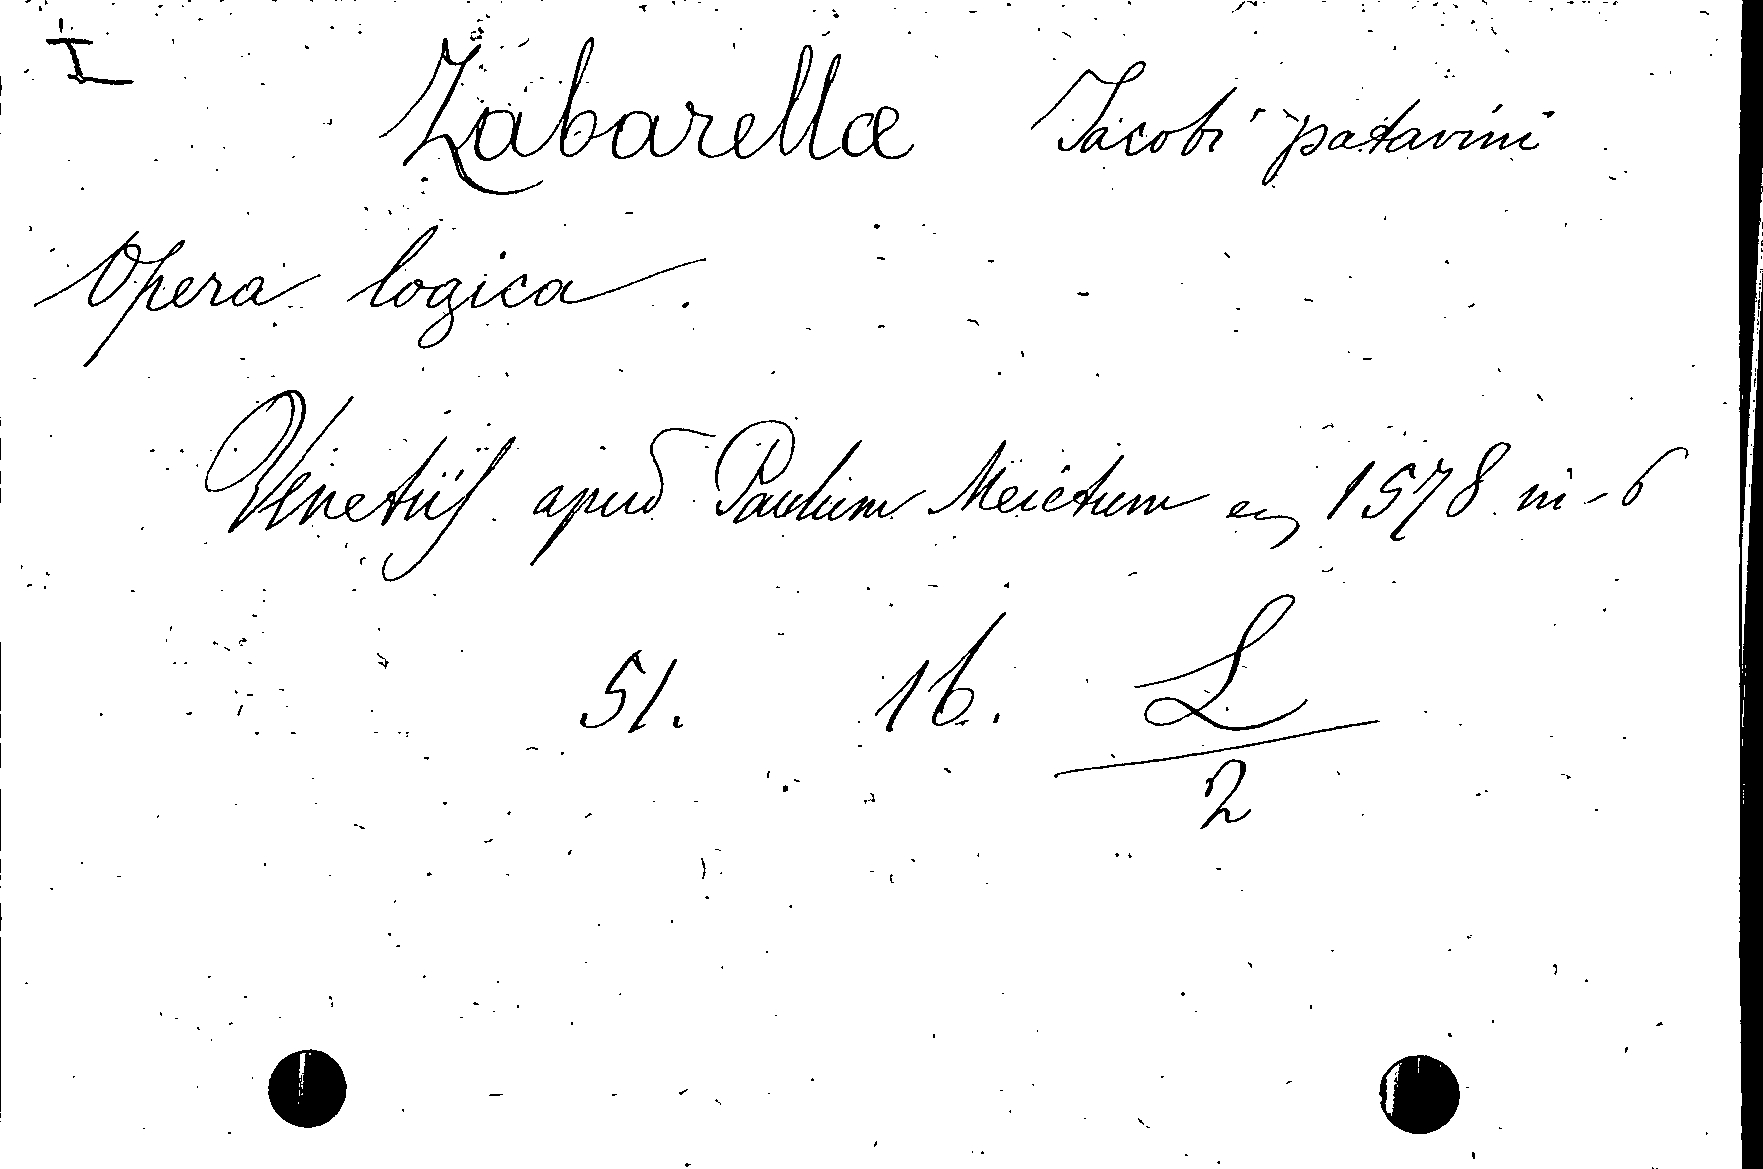 I
Zabarellæ Jacobi patavini
Opera logica.
Venetiis apud Paulum Meietum 1578 in-6
51. 16. L
2